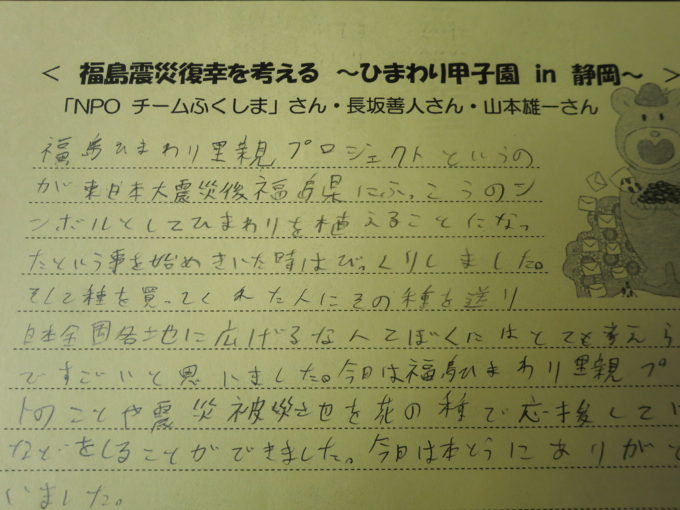 ＜ 福島震災復幸を考える ～ひまわり甲子園 in 静岡～ ＞
「NPO チームふくしま」さん・長坂善人さん・山本雄一さん
福島ひまわり里親プロジェクトというの
が東日本大震災後福島県にふっこうのシ
ンボルとしてひまわりを植えることになっ
たという事を始めきいた時はびっくりしました。
そして種を買ってくれた人にその種を送り
日本全国各土地に広げるなんてぼくにはとても考えら
ですごいと思いました。今日は福島ひまわり里親プ
トのことや震災被災地を花の種で応援して
などをしることができました。今日は本とうにありがと
いました。